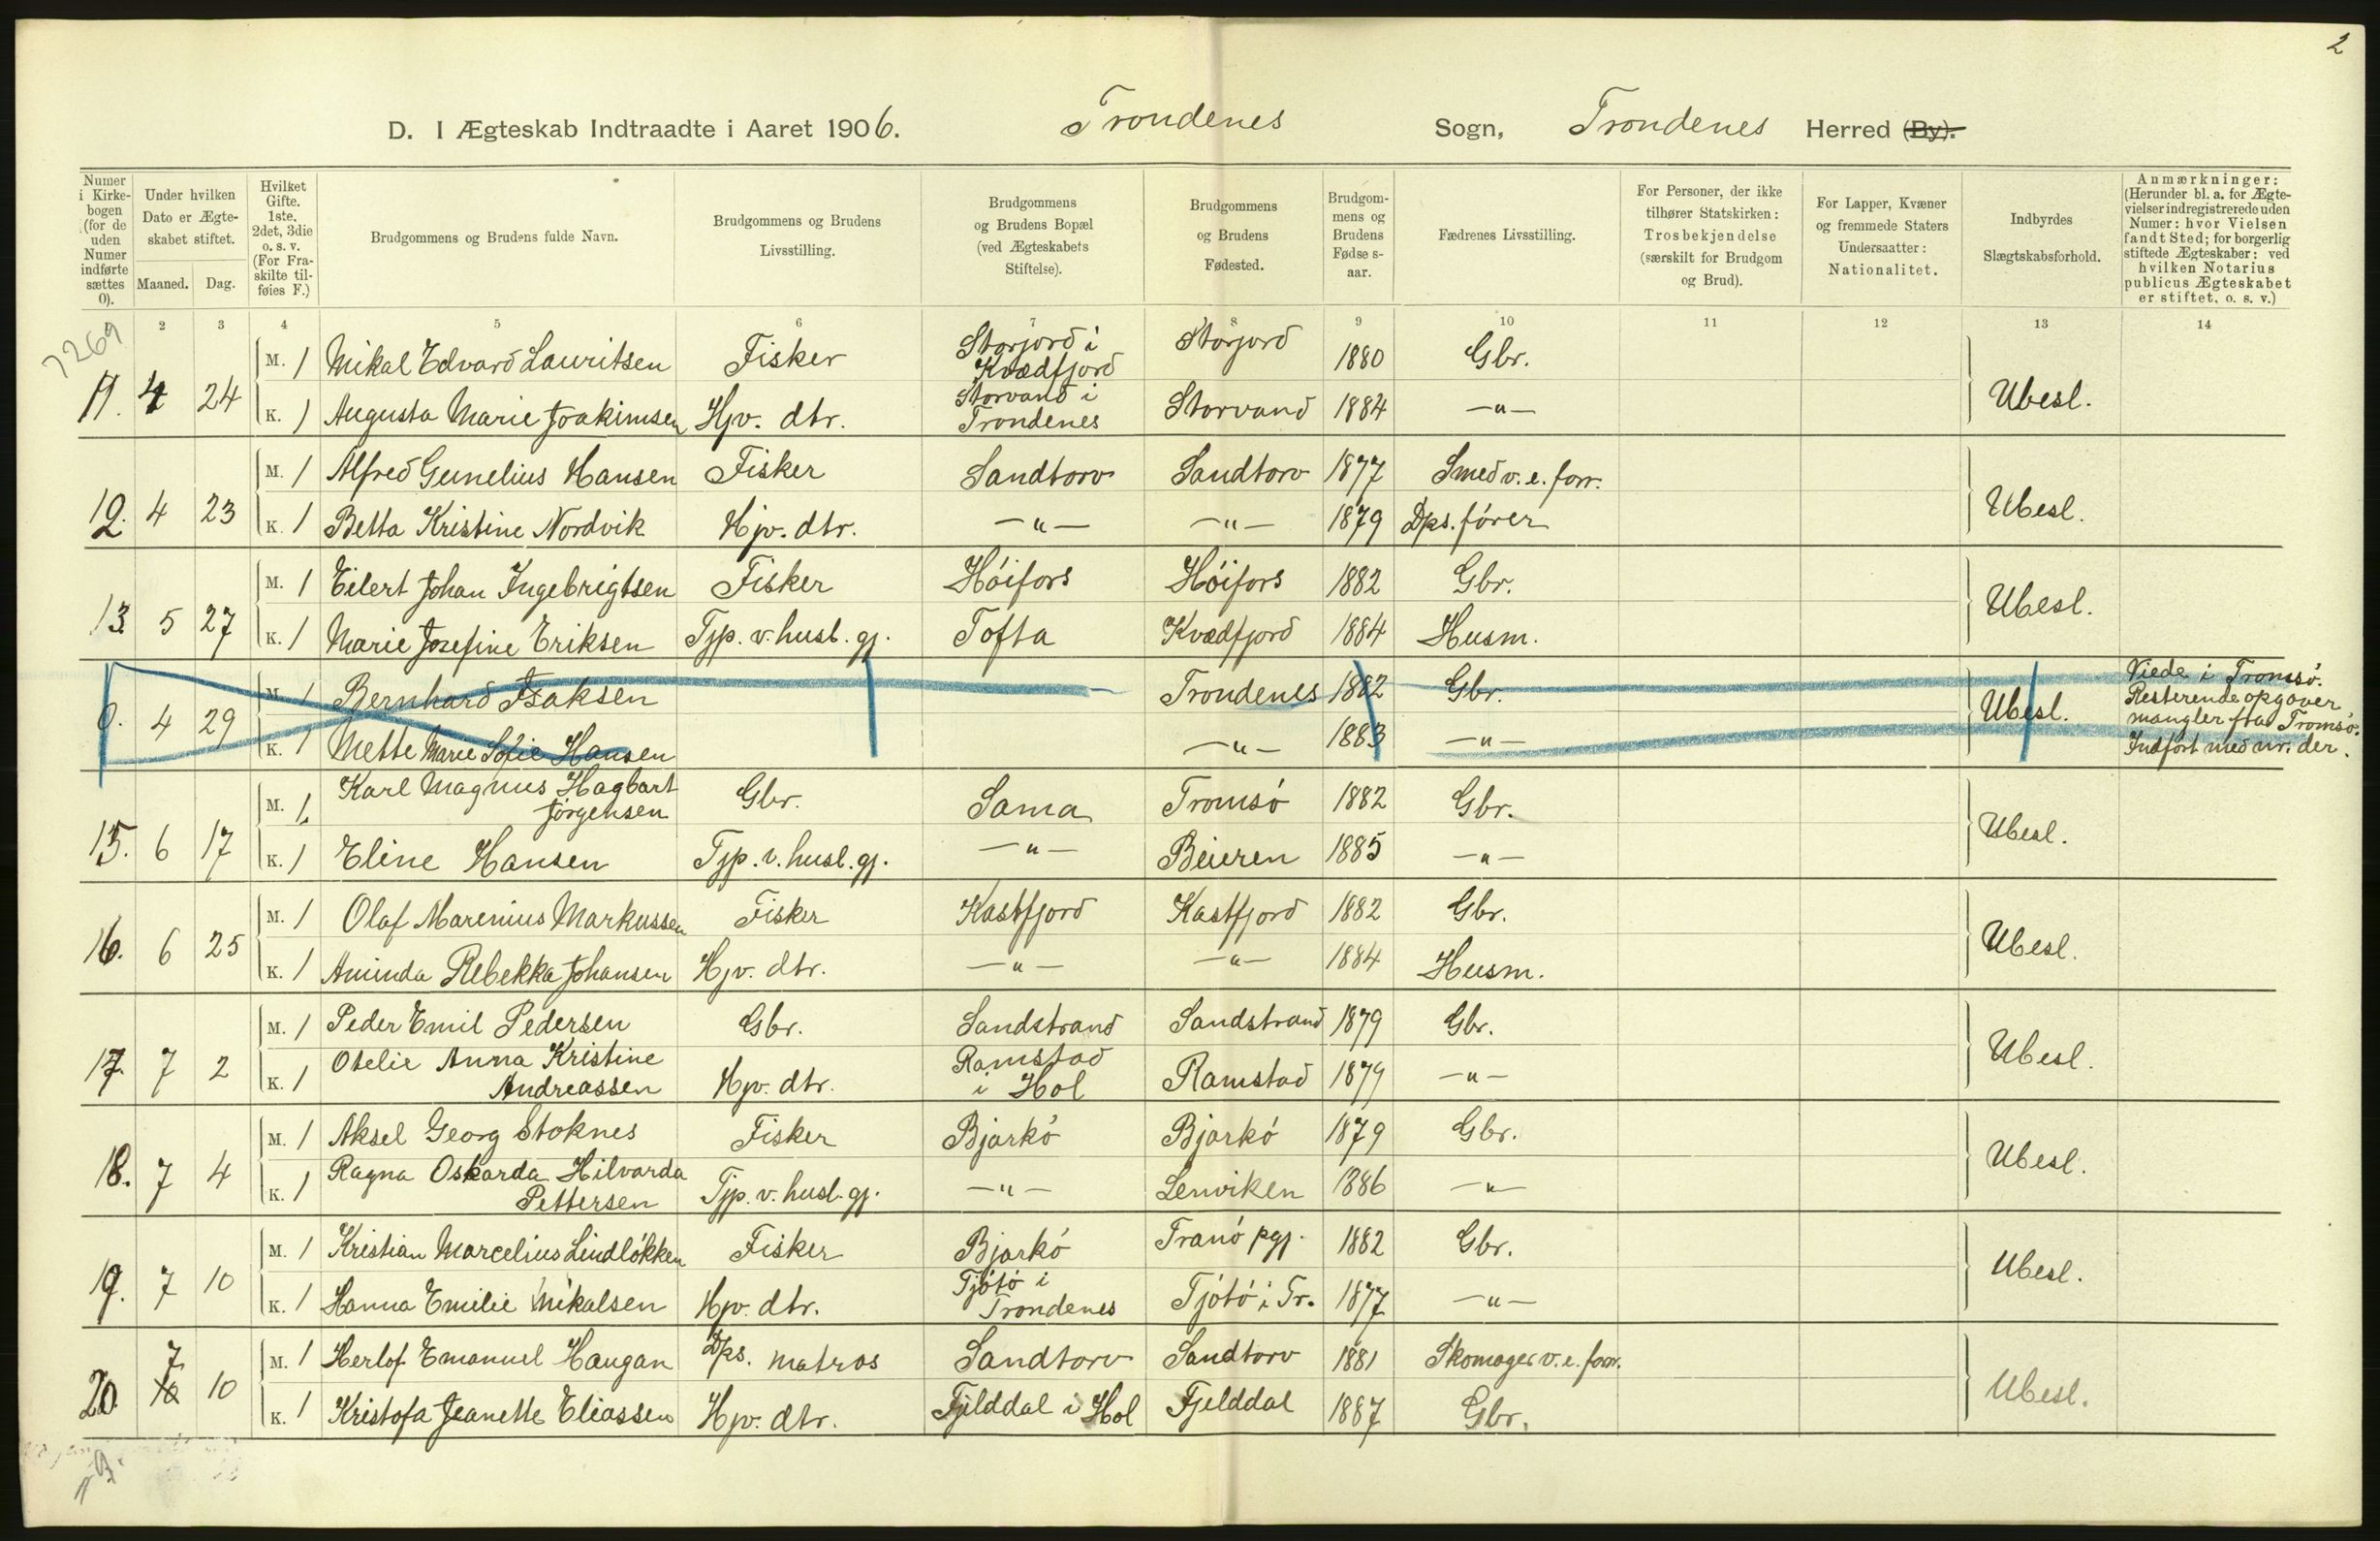 2
D. I Ægteskab Indtraadte i Aaret 1906. Trondenes Sogn, Trondenes Herred (By).
Numer i Kirkebogen (for de uden Numer indførte sættes 0).
Under hvilken Dato er Ægteskabet stiftet.
Maaned. Dag.
Hvilket Gifte. 1ste, 2det, 3die o. s. v. (For Fraskilte tilføies F.)
Brudgommens og Brudens fulde Navn.
Brudgommens og Brudens Livsstilling.
Brudgommens og Brudens Bopæl (ved Ægteskabets Stiftelse).
Brudgommens og Brudens Fødested.
Brudgommens og Brudens Fødselsaar.
Fædrenes Livsstilling.
For Personer, der ikke tilhører Statskirken: Trosbekjendelse (særskilt for Brudgom og Brud).
For Lapper, Kvæner og fremmede Staters Undersaatter: Nationalitet.
Indbyrdes Slægtskabsforhold.
Anmærkninger: (Herunder bl. a. for Ægtevielser indregistrerede uden Numer: hvor Vielsen fandt Sted; for borgerlig stiftede Ægteskaber: ved hvilken Notarius publicus Ægteskabet er stiftet, o. s. v.)
2 3 4 5 6 7 8 9 10 11 12 13 14
7269
11. 4 24 M. 1 Mikal Edvard Lauritsen Fisker Storjord i Kvædfjord Storjord 1880 Gbr. Ubesl.
K. 1 Augusta Marie Joakimsen Hjv. dtr. Storvand i Trondenes Storvand 1884 —"—
12. 4 23 M. 1 Alfred Gunelius Hansen Fisker Sandtorv Sandtorv 1877 Smed v. e. forr. Ubesl.
K. 1 Betta Kristine Nordvik Hjv. dtr. —"— —"— 1879 Dps. fører
13. 5 27 M. 1 Eilert Johan Ingebrigtsen Fisker Høifors Høifors 1882 Gbr. Ubesl.
K. 1 Marie Josefine Eriksen Tjp. v. husl. gj. Tofta Kvædfjord 1884 Husm.
0. 4 29 M. 1 Bernhard Isaksen Trondenes 1882 Gbr. Ubesl. Viede i Tromsø. Resterende opgaver mangler fra Tromsø. Indført med nr. der.
K. 1 Mette Marie Sofie Hansen —"— 1883 —"—
15. 6 17 M. 1 Karl Magnus Hagbart Jørgensen Gbr. Sama Tromsø 1882 Gbr. Ubesl.
K. 1 Eline Hansen Tjp. v. husl. gj. —"— Beieren 1885 —"—
16. 6 25 M. 1 Olaf Marenius Markussen Fisker Kastfjord Kastfjord 1882 Gbr. Ubesl.
K. 1 Aminda Rebekka Johansen Hjv. dtr. —"— —"— 1884 Husm.
17. 7 2 M. 1 Peder Emil Pedersen Gbr. Sandstrand Sandstrand 1879 Gbr. Ubesl.
K. 1 Otelie Anna Kristine Andreassen Hjv. dtr. Ramstad i Hol Ramstad 1879 —"—
18. 7 4 M. 1 Aksel Georg Stoknes Fisker Bjarkø Bjarkø 1879 Gbr. Ubesl.
K. 1 Ragna Oskarda Hilvarda Pettersen Tjp. v. husl. gj. —"— Lenviken 1886 —"—
19. 7 10 M. 1 Kristian Marcelius Lindløkken Fisker Bjarkø Tranø pgj. 1882 Gbr. Ubesl.
K. 1 Hanna Emilie Mikalsen Hjv. dtr. Tjøtø i Trondenes Tjøtø i Tr. 1877 —"—
20. 7 10 M. 1 Herlof Emanuel Haugan Dps. matros Sandtorv Sandtorv 1881 Skomager v. e. forr. Ubesl.
K. 1 Kristofa Jeanette Eliassen Hjv. dtr. Fjelddal i Hol Fjelddal 1887 Gbr.